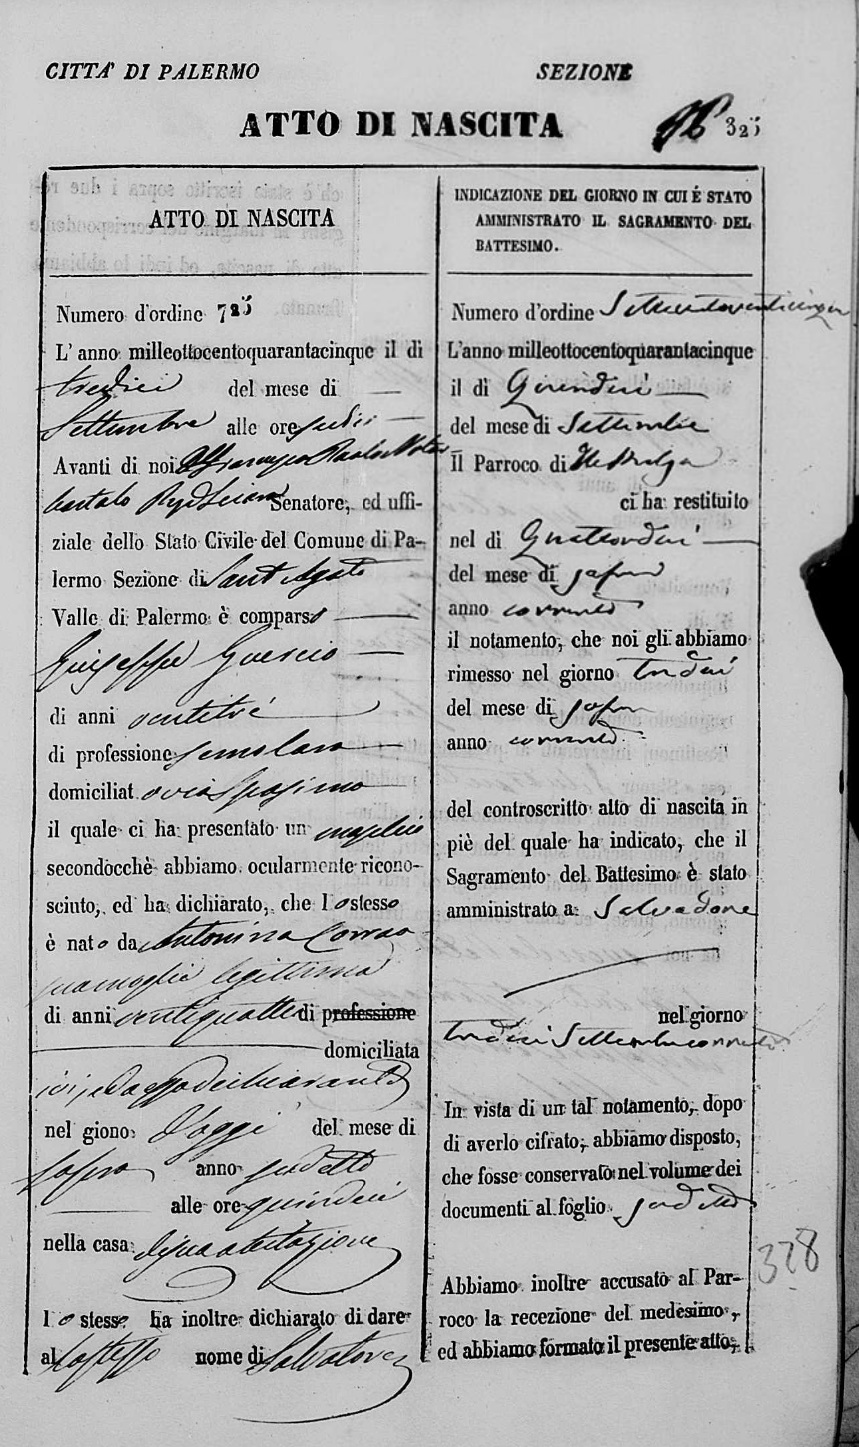 CITTA' DI PALERMO
SEZIONE
ATTO DI NASCITA
325
ATTO DI NASCITA
Numero d'ordine 725
L'anno milleottocentoquarantacinque il di
tredici del mese di
Settembre alle ore sedici
Avanti di noi
Senatore, ed uffi-
ziale dello Stato Civile del Comune di Pa-
lermo Sezione di Sant Agata
Valle di Palermo è comparso
Giuseppe Guercio
di anni ventitré
di professione semolaro
domiciliat o via Spasimo
il quale ci ha presentato un maschio
secondocchè abbiamo ocularmente ricono-
sciuto, ed ha dichiarato, che l o stesso
è nato da Antonina Corrao
sua moglie legittima
di anni ventiquattro di professione
domiciliata
ivi, e da esso dichiarante
nel giono d'oggi del mese di
sopra anno sudetto
alle ore quindici
nella casa di sua abitazione
l o stesso ha inoltre dichiarato di dare
al lo stesso nome di Salvatore
INDICAZIONE DEL GIORNO IN CUI É STATO
AMMINISTRATO IL SAGRAMENTO DEL
BATTESIMO.
Numero d'ordine Settecentoventicinque
L'anno milleottocentoquarantacinque
il di Quindici
del mese di Settembre
Il Parroco di
ci ha restituito
nel di Quattordici
del mese di sopra
anno corrente
il notamento, che noi gli abbiamo
rimesso nel giorno tredici
del mese di sopra
anno corrente
del controscritto atto di nascita in
piè del quale ha indicato, che il
Sagramento del Battesimo è stato
amministrato a Salvadore
nel giorno
tredici Settembre corrente
In vista di un tal notamento, dopo
di averlo cifrato, abbiamo disposto,
che fosse conservato nel volume dei
documenti al foglio sudetto
Abbiamo inoltre accusato al Par-
roco la recezione del medesimo,
ed abbiamo formato il presente atto,
328